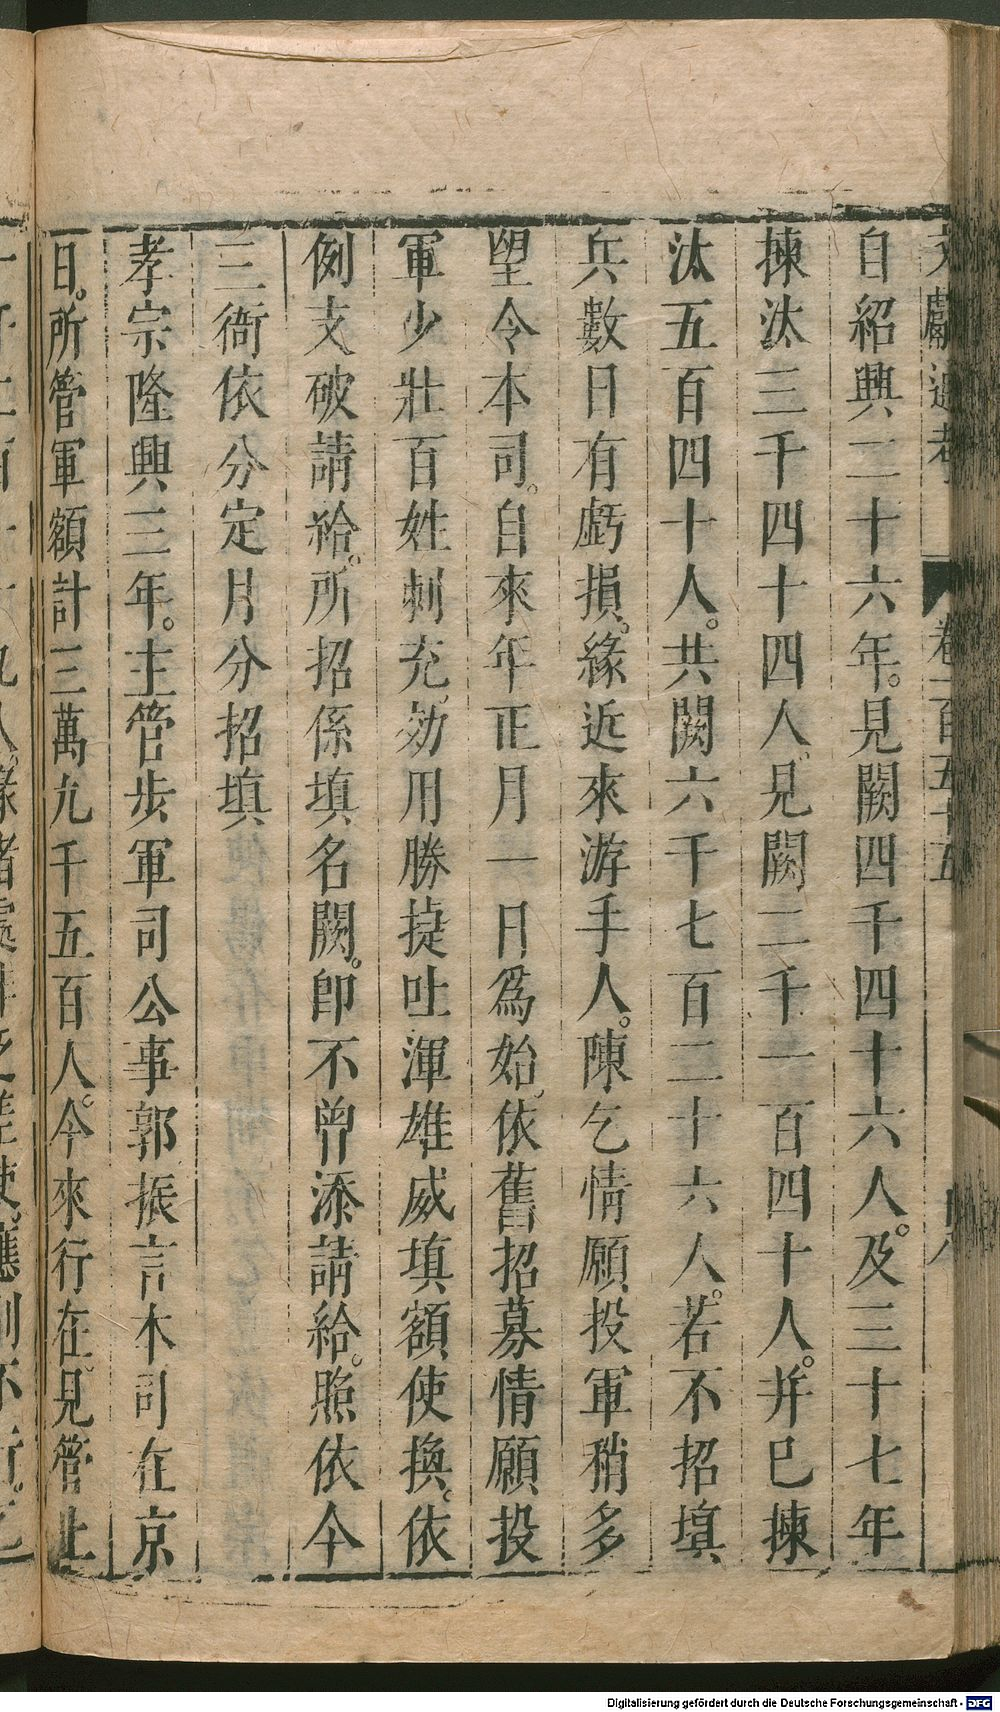 文獻通考 卷一百五十五
自紹興二十六年。見闕四千四十六人。及三十七年
揀汰三千四十四人。見闕二千一百四十人。并已揀
汰五百四十人。共闕六千七百二十六人。若不招填
兵數日有虧損。緣近來游手人。陳乞情願投軍稍多
望令本司。自來年正月一日爲始。依舊招募情願投
軍少壯百姓刺充。効用勝捷吐渾雄威填額使換。依
例支破請給。所招係填名闕。卽不曾添請給。照依今
三衙依分定月分招填
孝宗隆興三年。主管步軍司公事郭振言本司在京
日。所管軍額計三萬九千五百人。今來行在。見管止
Digitalisierung gefördert durch die Deutsche Forschungsgemeinschaft - DFG